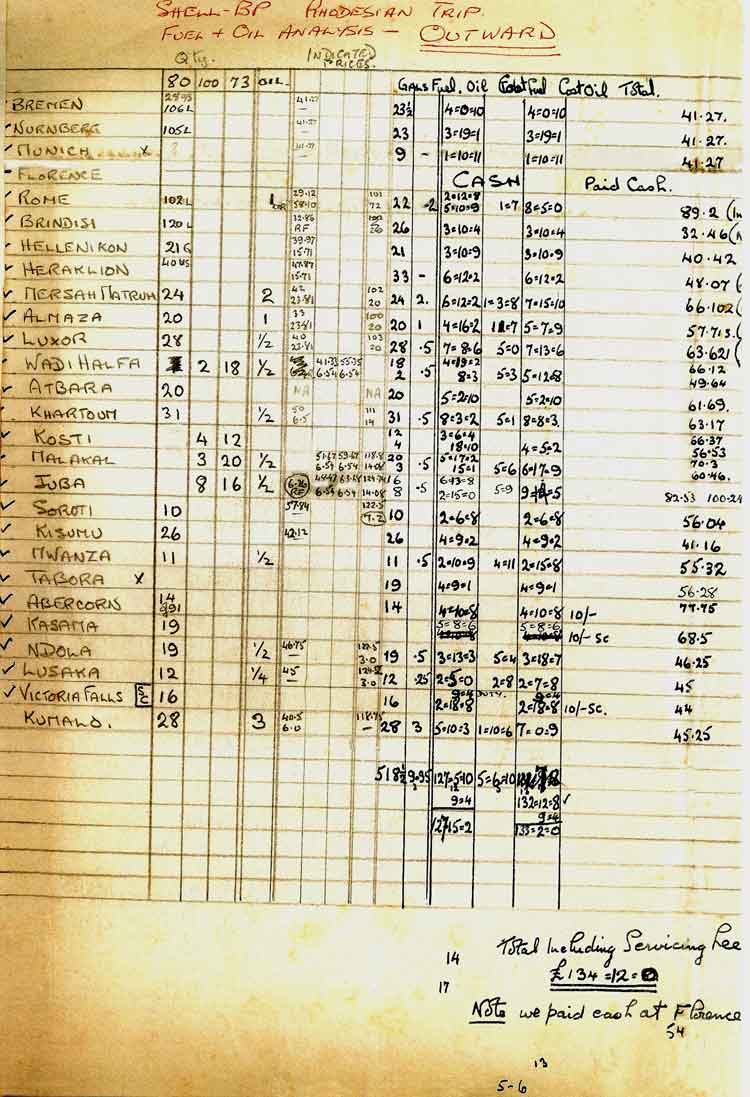 SHELL-BP RHODESIAN TRIP.
FUEL + OIL ANALYSIS — OUTWARD
Qty. INDICATED PRICES.
80 100 73 OIL GALS Fuel. Oil Fuel Cost Oil Total.
BREMEN 106L 41.27 23½ 4=0=10 4=0=10 41.27.
NURNBERG 105L 41.27 23 3=19=1 3=19=1 41.27.
MUNICH x ? 41.27 9 - 1=10=11 1=10=11 41.27
FLORENCE CASH Paid Cash.
ROME 102L 1 29.12 58.10 102 72 22 .2 2=12=8 5=10=9 1=7 8=5=0 89.2
BRINDISI 120L 12.86 RF 26 3=10=4 3=10=4 32.46
HELLENIKON 21G 39.97 15.71 21 3=10=9 3=10=9 40.42
HERAKLION 40US 47.87 15.71 33 - 6=12=2 6=12=2 48.07
MERSAH MATRUH 24 2 42 23.81 102 20 24 2. 6=12=2 1=3=8 7=15=10 66.102
ALMAZA 20 1 33 23.81 100 20 20 1 4=16=2 11=7 5=7=9 57.713
LUXOR 28 ½ 40 23.81 103 20 28 .5 7=8=6 5=0 7=13=6 63.621
WADI HALFA 2 18 ½ 41.33 55.35 6.54 6.54 18 2 .5 4=19=2 8=3 5=3 5=12=8 66.12 49.64
ATBARA 20 NA NA 20 5=2=10 5=2=10 61.69.
KHARTOUM 31 ½ 50 6.5 111 14 31 .5 8=3=2 5=1 8=8=3. 63.17
KOSTI 4 12 12 4 3=6=4 18=10 4=5=2 66.37 56.53
MALAKAL 3 20 ½ 51.67 59.67 118.8 6.54 6.54 14.08 20 3 .5 5=17=2 15=1 5=6 6=17=9 70.3 60.46.
JUBA 8 16 ½ 6.26 RF 6.54 6.54 14.08 16 8 .5 6=13=8 2=15=0 5=9 82.53 100.24
SOROTI 10 57.84 122.5 7.2 10 2=6=8 2=6=8 56.04
KISUMU 26 42.12 26 4=9=2 4=9=2 41.16
MWANZA 11 ½ 11 .5 2=10=9 4=11 2=15=8 55.32
TABORA x 19 4=9=1 4=9=1 56.28
ABERCORN 14 14 4=10=8 4=10=8 10/- 77.75
KASAMA 19 5=8=6 5=8=6 10/- SC 68.5
NDOLA 19 ½ 46.75 122.5 3.0 19 .5 3=13=3 5=4 3=18=7 46.25
LUSAKA 12 ¼ 45 3.0 12 .25 2=5=0 2=8 2=7=8 45
VICTORIA FALLS SC 16 16 9=4 DUTY. 2=18=8 9=4 2=18=8 10/-SC. 44
KUMALO. 28 3 40.5 6.0 118.75 28 3 5=10=3 1=10=6 7=0=9 45.25
518½ 9.95 127=5=10 5=6=10
9=4 132=12=8
9=4
127=15=2 133=2=0
14 Total Including Servicing Fee
£134=12=0
17
Note we paid cash at Florence
54
13
5-6